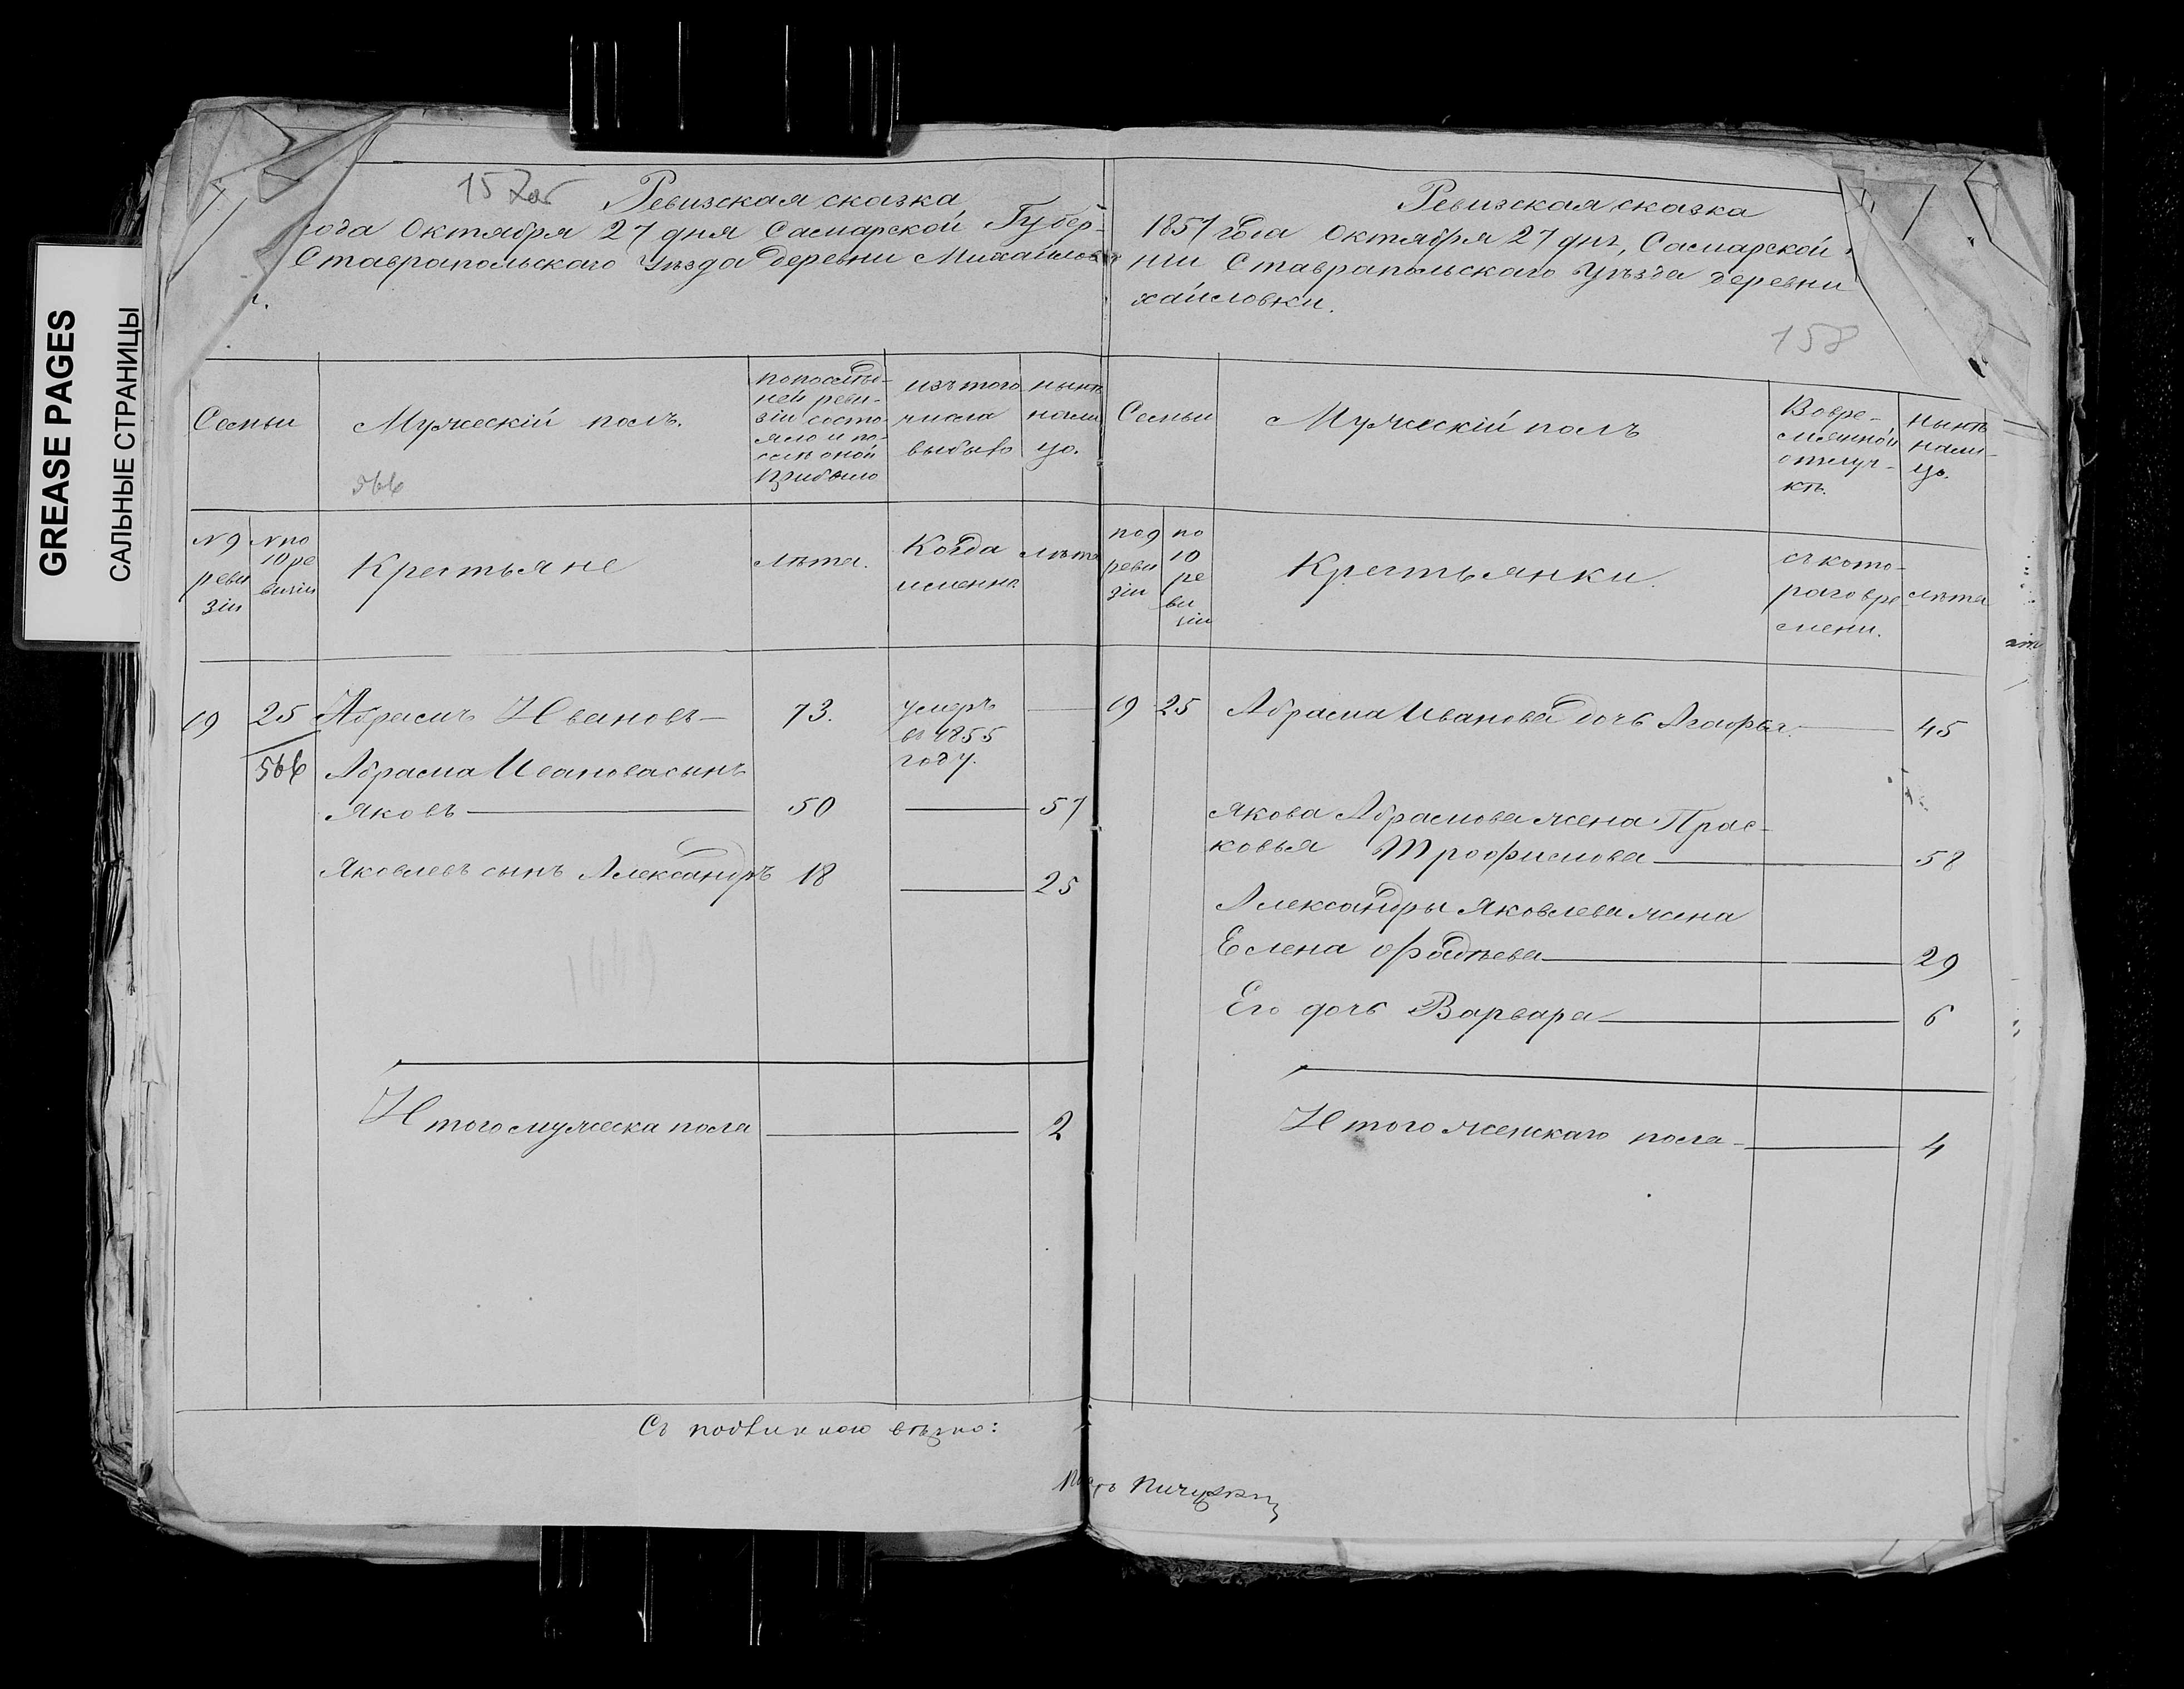 GREASE PAGES
САЛЬНЫЕ СТРАНИЦЫ
157об
Ревизская сказка
года Октября 27 дня Самарской Губер-
Ставрапольскаго Уѣзда деревни Михайловк
Семьи
Мужескій полъ.
566
попослѣд-
ней реви-
зіи состо-
яло и по-
слѣ оной
прибыло
изъ того
числа
выбыло
нынѣ
нали
цо.
№ 9
реви
зіи
№ по
10 ре
визіи
Крестьяне
лѣта.
Когда
именно.
лѣта
19 25 Абрамъ Ивановъ 73. умеръ
въ 1855
году.
566 Абрама Иванова сынъ
Яковъ 50 57
Яковлевъ сынъ Александръ 18 25
Итого мужеска пола 2
Съ подлинною вѣрно:
Ревизская сказка
1857 года Октября 27 дня, Самарской
ніи Ставрапольскаго Уѣзда деревни
хайловки.
158
Семьи
Мужескій полъ
Вовре-
мянной
отлуч-
кѣ.
Нынѣ
нали-
цо.
по 9
реви
зіи
по
10
ре
ви
зіи
Крестьянки.
съ кото-
раго вре
мени.
лѣта
19 25 Абрама Иванова дочь Агафья. 45
Якова Абрамова жена Прас-
ковья Трофимова 58
Александры Яковлева жена
Елена Фадѣева 29
Его дочь Варвара 6
Итого женскаго пола 4